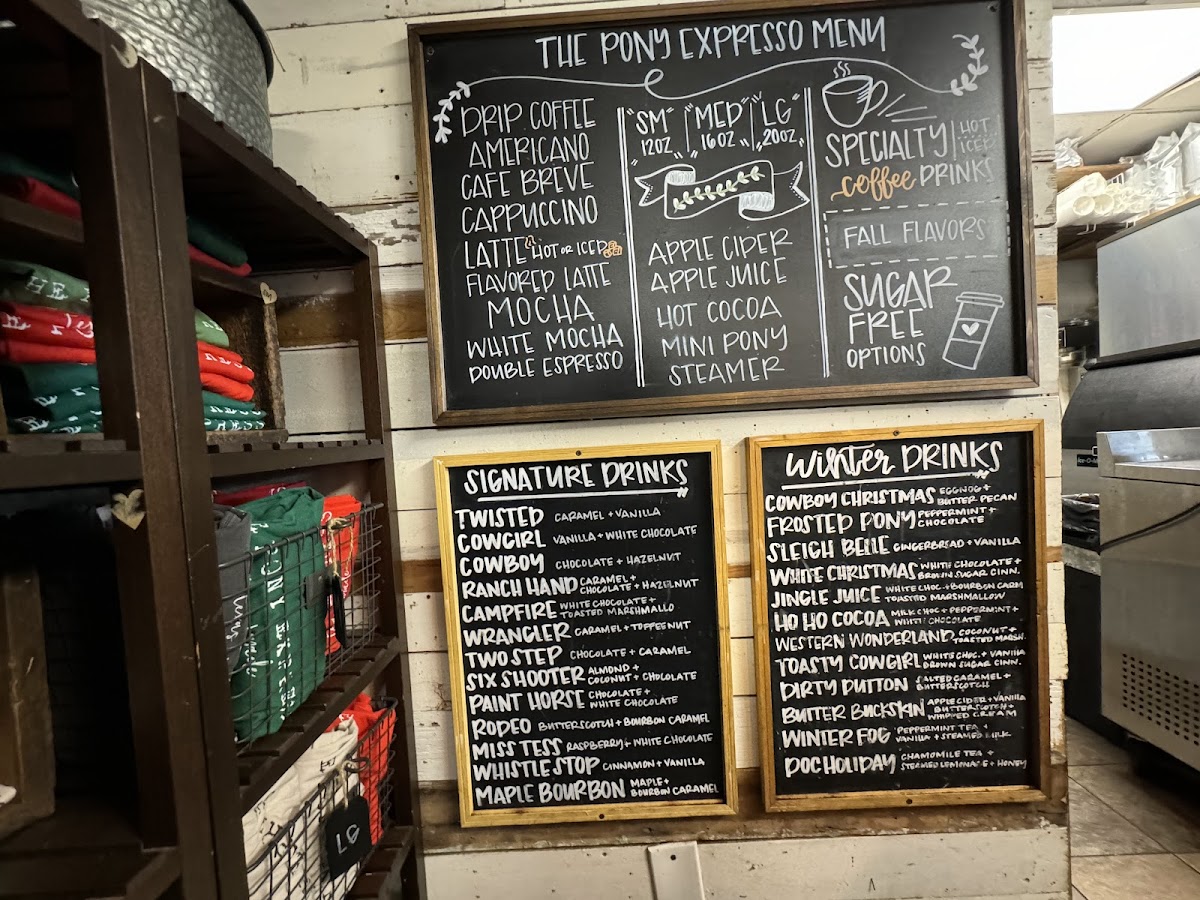 THE PONY EXPRESSO MENU
DRIP COFFEE
AMERICANO
CAFE BREVE
CAPPUCCINO
LATTE HOT OR ICED
FLAVORED LATTE
MOCHA
WHITE MOCHA
DOUBLE ESPRESSO
"SM" "MED" "LG"
12OZ 16OZ 20OZ
APPLE CIDER
APPLE JUICE
HOT COCOA
MINI PONY
STEAMER
SPECIALTY HOT ICED
coffee DRINKS
FALL FLAVORS
SUGAR
FREE
OPTIONS
SIGNATURE DRINKS
TWISTED CARAMEL + VANILLA
COWGIRL VANILLA + WHITE CHOCOLATE
COWBOY CHOCOLATE + HAZELNUT
RANCH HAND CARAMEL + CHOCOLATE + HAZELNUT
CAMPFIRE WHITE CHOCOLATE + TOASTED MARSHMALLO
WRANGLER CARAMEL + TOFFEENUT
TWO STEP CHOCOLATE + CARAMEL
SIX SHOOTER ALMOND + COCONUT + CHOCOLATE
PAINT HORSE CHOCOLATE + WHITE CHOCOLATE
RODEO BUTTERSCOTCH + BOURBON CARAMEL
MISS TESS RASPBERRY + WHITE CHOCOLATE
WHISTLESTOP CINNAMON + VANILLA
MAPLE BOURBON MAPLE + BOURBON CARAMEL
Winter DRINKS
COWBOY CHRISTMAS EGGNOG + BUTTER PECAN
FROSTED PONY PEPPERMINT + CHOCOLATE
SLEIGH BELLE GINGERBREAD + VANILLA
WHITE CHRISTMAS WHITE CHOCOLATE + BROWN SUGAR CINN.
JINGLE JUICE WHITE CHOC. + BOURBON CARM TOASTED MARSHMALLOW
HO HO COCOA MILK CHOC + PEPPERMINT + WHITE CHOCOLATE
WESTERN WONDERLAND COCONUT + TOASTED MARSH.
TOASTY COWGIRL WHITE CHOC. + VANILLA BROWN SUGAR CINN.
DIRTY DUTTON SALTED CARAMEL + BUTTERSCOTCH
BUTTER BUCKSKIN APPLE CIDER + VANILLA BUTTERSCOTCH + WHIPPED CREAM
WINTER FOG PEPPERMINT TEA + VANILLA + STEAMED MILK
DOC HOLIDAY CHAMOMILE TEA + STEAMED LEMONADE + HONEY
LG